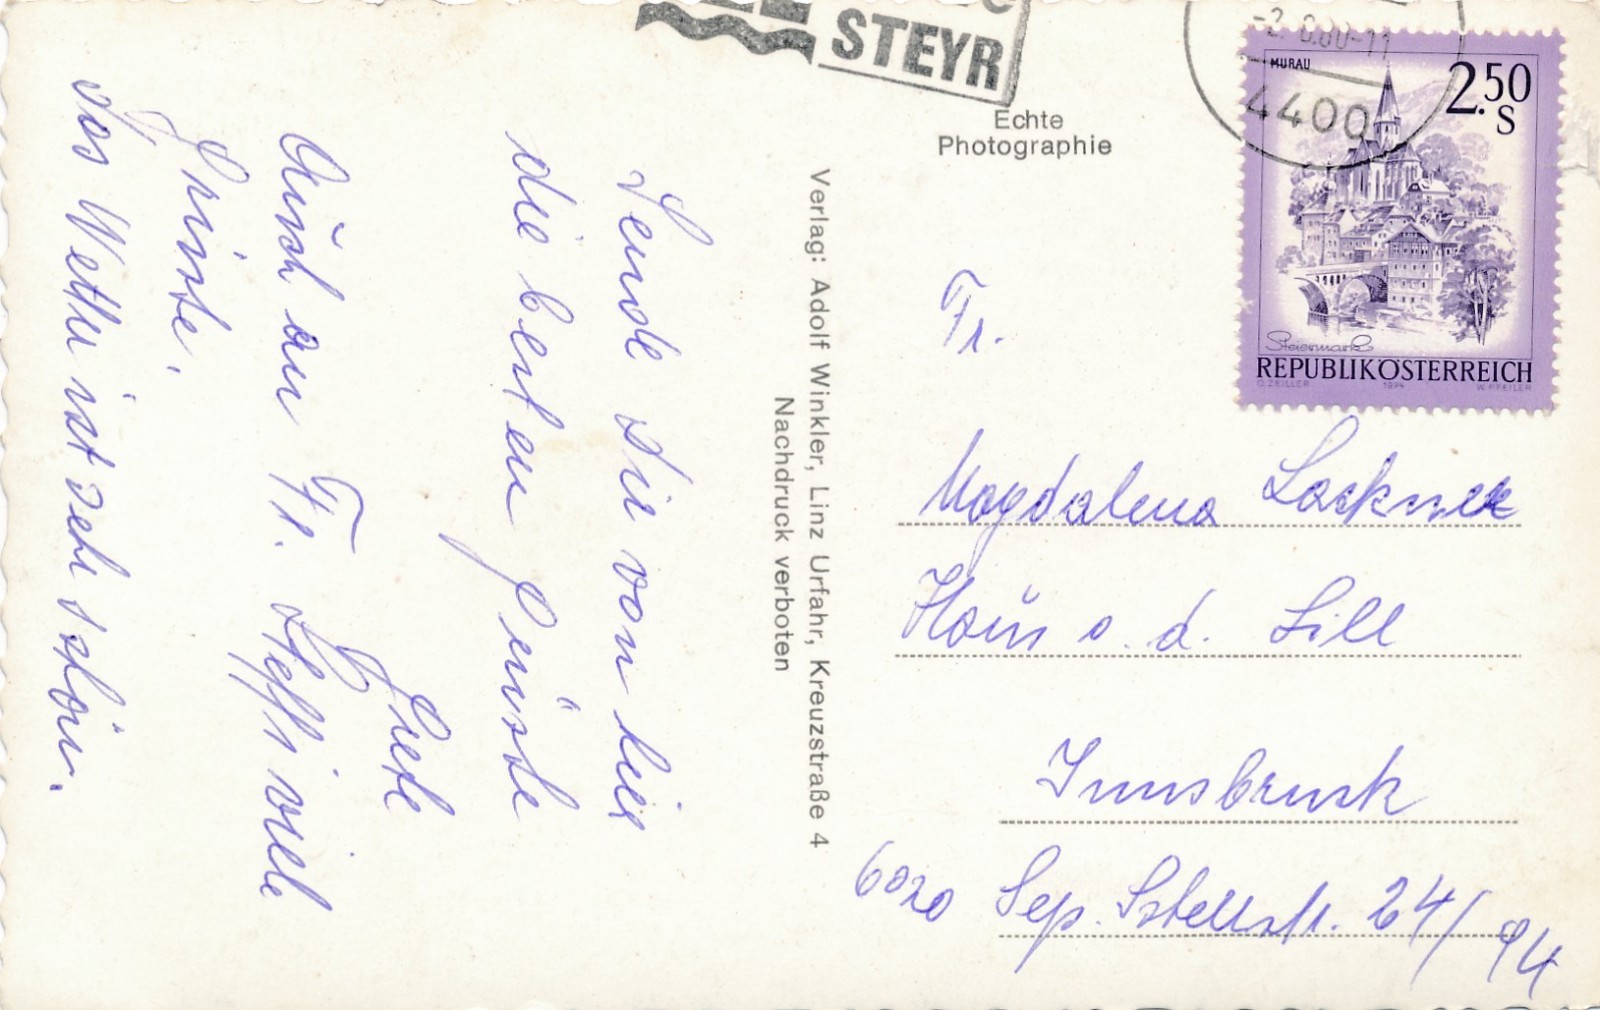 STEYR
-2.6.80-11
4400
MURAU
2.50
S
Steiermark
REPUBLIK ÖSTERREICH
O. ZEILLER 1974 W. PFEILER
Echte
Photographie
Verlag: Adolf Winkler, Linz Urfahr, Kreuzstraße 4
Nachdruck verboten
Sende dir von hier
die besten Grüsse
Grete
Auch an Fr. Steffi viele
Grüsse.
Das Wetter ist sehr schön.
Fr.
Magdalena Lackner
Haus a. d. Sill
Innsbruck
6020 Sep. Stellstr. 24/94